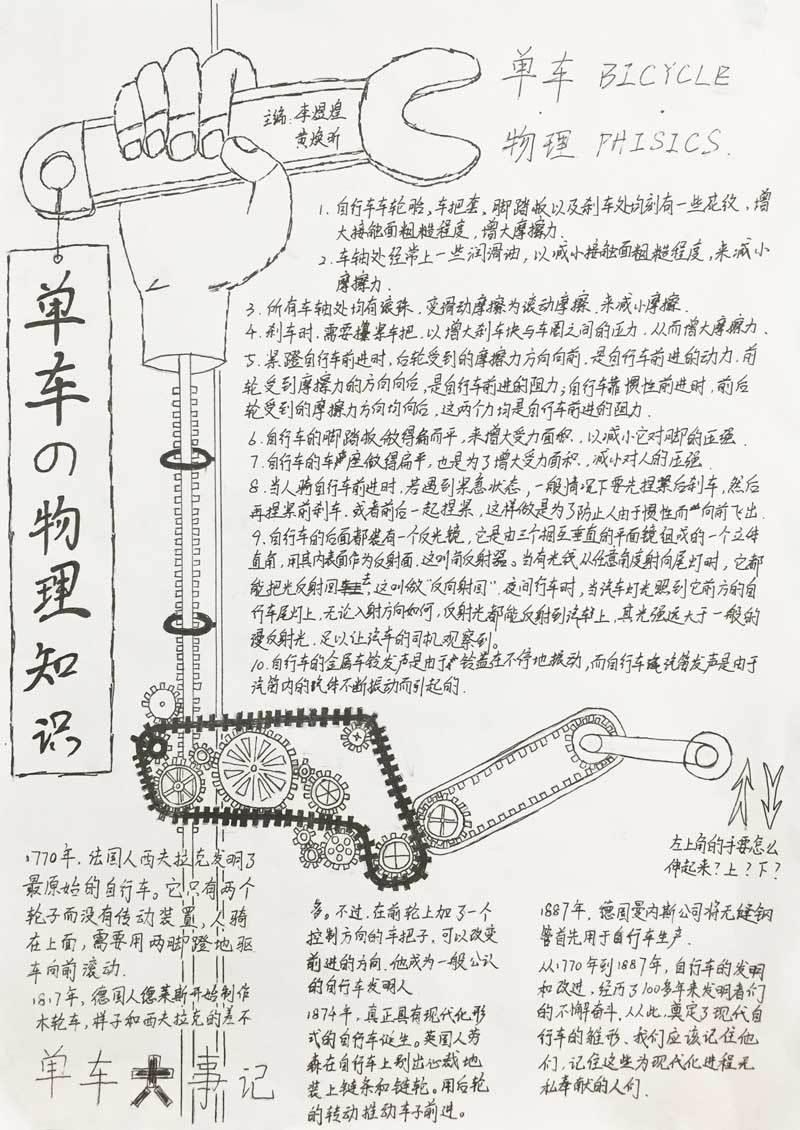 单车 BICYCLE
物理 PHISICS.
主编:李煜煌
黄焕昕
单车の物理知识
1. 自行车车轮胎、车把套、脚踏板以及刹车处均刻有一些花纹,增
大接触面粗糙程度,增大摩擦力.
2. 车轴处经常上一些润滑油,以减小接触面粗糙程度,来减小
摩擦力.
3. 所有车轴处均有滚珠.变滑动摩擦为滚动摩擦.来减小摩擦.
4. 刹车时.需要攥紧车把.以增大刹车块与车圈之间的压力.从而增大摩擦力.
5. 紧蹬自行车前进时,后轮受到的摩擦力方向向前.是自行车前进的动力.前
轮受到摩擦力的方向向后,是自行车前进的阻力;自行车靠惯性前进时,前后
轮受到的摩擦力方向均向后,这两个力均是自行车前进的阻力.
6. 自行车的脚踏板做得扁而平,来增大受力面积.,以减小它对脚的压强.
7. 自行车的车座做得扁平,也是为了增大受力面积.,减小对人的压强.
8. 当人骑自行车前进时,若遇到紧急状态,一般情况下要先捏紧后刹车,然后
再捏紧前刹车.或者前后一起捏紧,这样做是为了防止人由于惯性而向前飞出.
9. 自行车的后面都装有一个反光镜,它是由三个相互垂直的平面镜组成的一个立体
直角,用其内表面作为反射面.这叫角反射器。当有光线从任意角度射向尾灯时,它都
能把光反射回去,这叫做“反向射回”.夜间行车时,当汽车灯光照到它前方的自
行车尾灯上,无论入射方向如何,反射光都能反射到汽车上,其光强远大于一般的
漫反射光.足以让汽车的司机观察到。
10. 自行车的金属车铃发声是由于铃盖在不停地振动,而自行车汽笛发声是由于
汽笛内的汽件不断振动而引起的.
左上角的手要怎么
伸起来?上?下?
1770年,法国人西夫拉克发明了
最原始的自行车。它只有两个
轮子而没有传动装置,人骑
在上面,需要用两脚蹬地驱
车向前滚动.
1817年,德国人德莱斯开始制作
木轮车,样子和西夫拉克的差不
多。不过.在前轮上加了一个
控制方向的车把子,可以改变
前进的方向.他成为一般公认
的自行车发明人
1874年,真正具有现代化形
式的自行车诞生。英国人劳
森在自行车上别出心裁地
装上链条和链轮。用后轮
的转动推动车子前进。
1887年,德国曼内斯公司将无缝钢
管首先用于自行车生产.
从1770年到1887年,自行车的发明
和改进,经历了100多年来发明者们
的不懈奋斗,从此,奠定了现代自
行车的雏形.我们应该记住他
们,记住这些为现代化进程无
私奉献的人们.
单车大事记